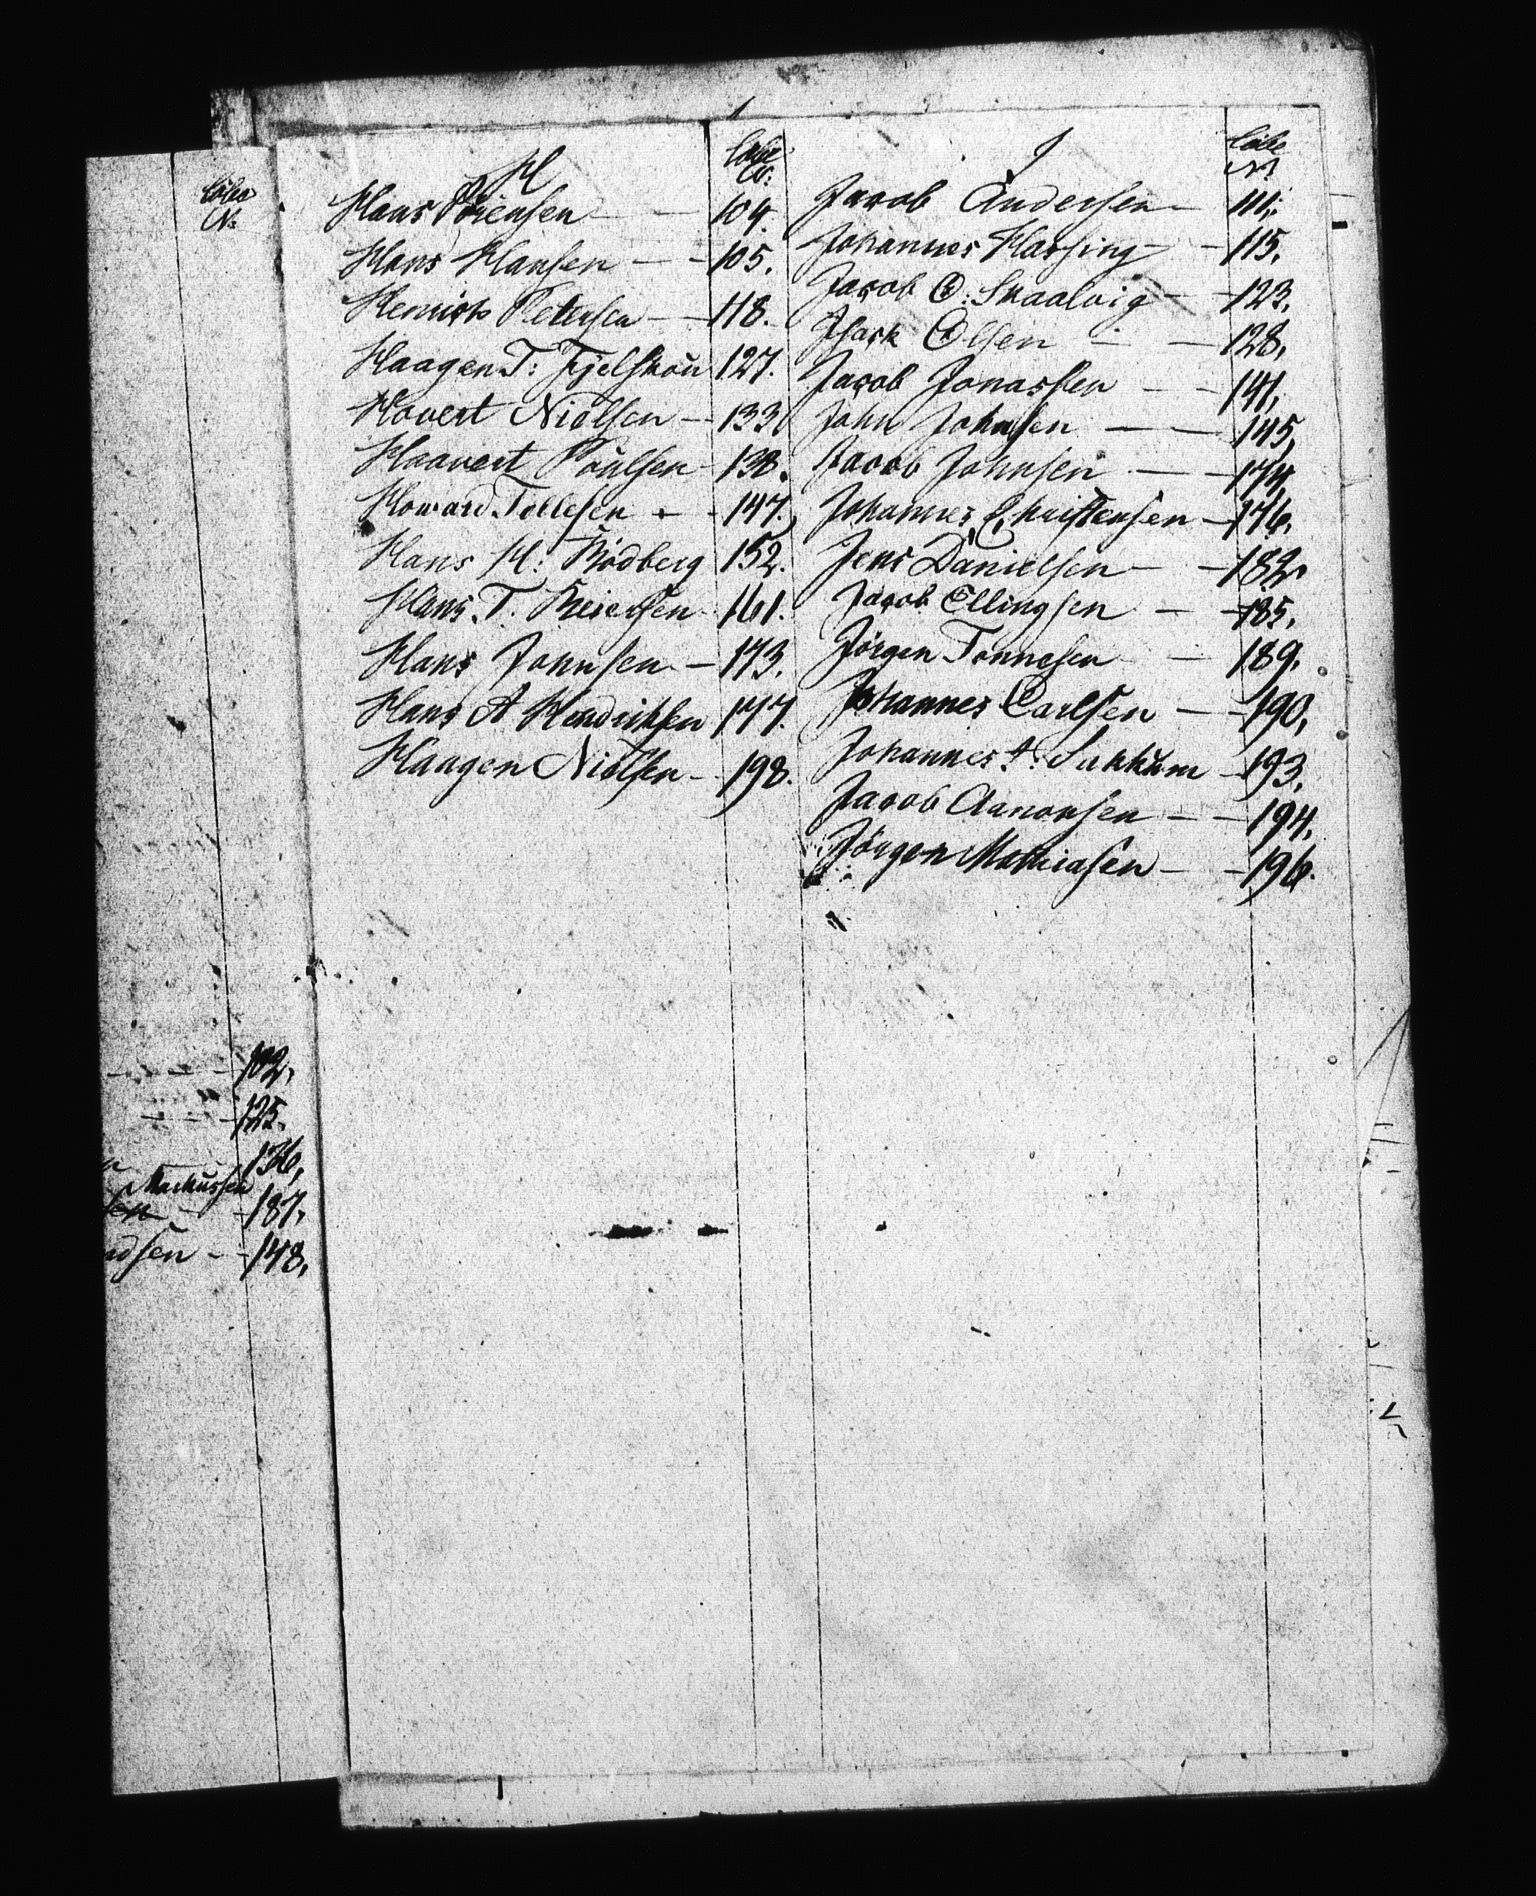 Löbe
No:
102.
125.
136.
Markussen
187.
148.
H
Löbe
No:
Hans Sörensen 104.
Hans Hansen 105.
Henrich Petersen 118.
Haagen T: Fjelskou 127.
Hovert Nielsen 133.
Haavert Poulsen 138.
Howard Tollesen 147.
Hans H: Brödberg 152.
Hans T. Reiersen 161.
Hans Johnsen 173.
Hans A Hendriksen 177.
Haagen Nielsen 198.
J
Löbe
No
Jacob Andersen 111.
Johannes Hassing 115.
Jacob O: Skaalvig 123.
Isack Olsen 128.
Jacob Jonassen 141.
John Johnsen 145.
Jacob Johnsen 174.
Johannes Christensen 176.
Jens Danielsen 182.
Jacob Ellingsen 185.
Jörgen Tonnesen 189.
Johannes Carlsen 190.
Johannes A: 193.
Jacob Aanonsen 194.
Jörgen Mathiasen 196.